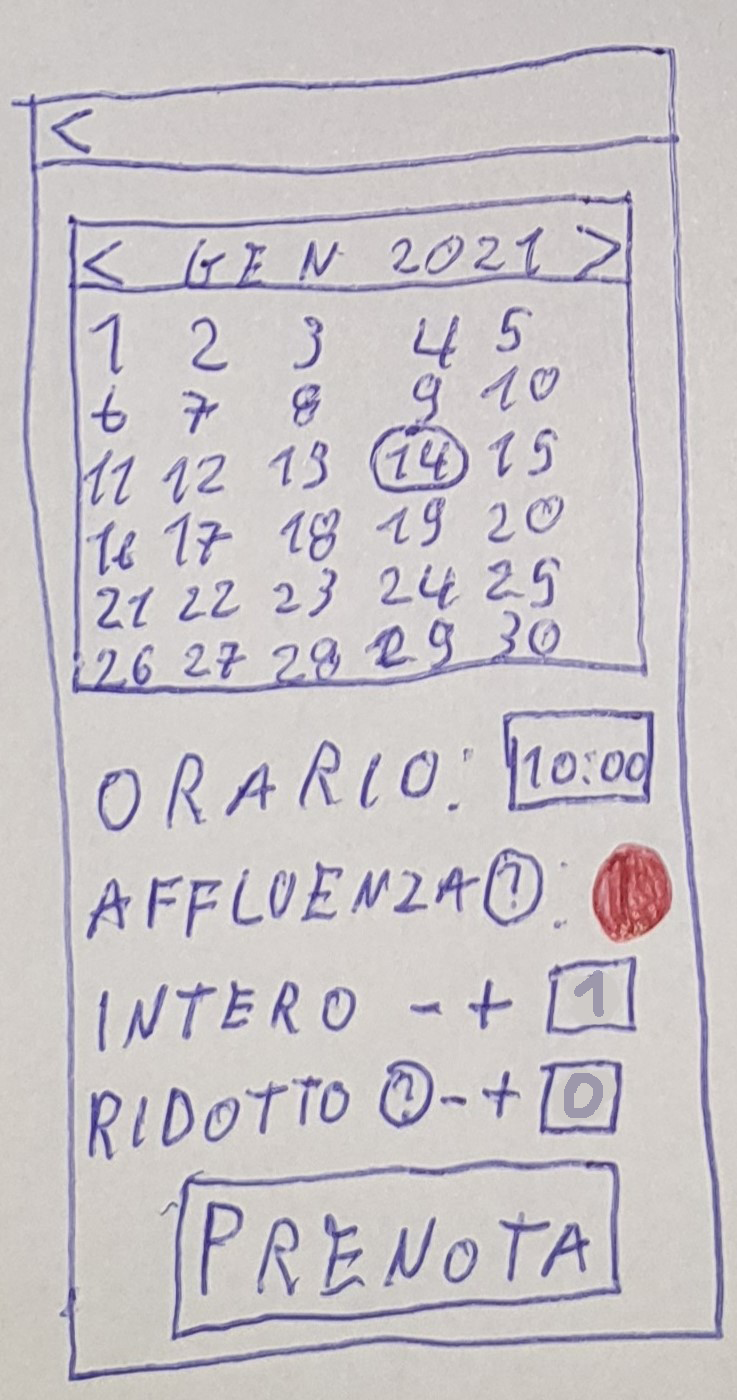 <
< GEN 2021 >
1 2 3 4 5
6 7 8 9 10
11 12 13 14 15
16 17 18 19 20
21 22 23 24 25
26 27 28 29 30
ORARIO: 10:00
AFFLUENZA ?:
INTERO - + 1
RIDOTTO ? - + 0
PRENOTA